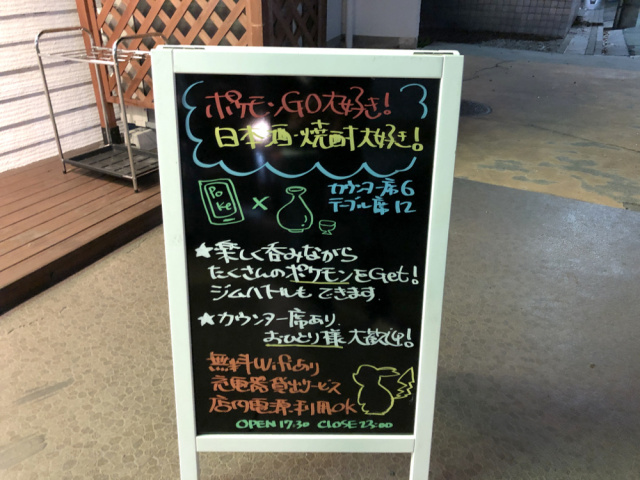 ポケモンGO大好き!
日本酒・焼酎大好き!
Poke
×
カウンター席6
テーブル席12
★楽しく呑みながら
たくさんのポケモンをGet!
ジムバトルもできます
★カウンター席あり
おひとり様大歓迎!
無料Wifiあり
充電器貸出サービス
店内電源利用OK
OPEN 17:30 CLOSE 23:00